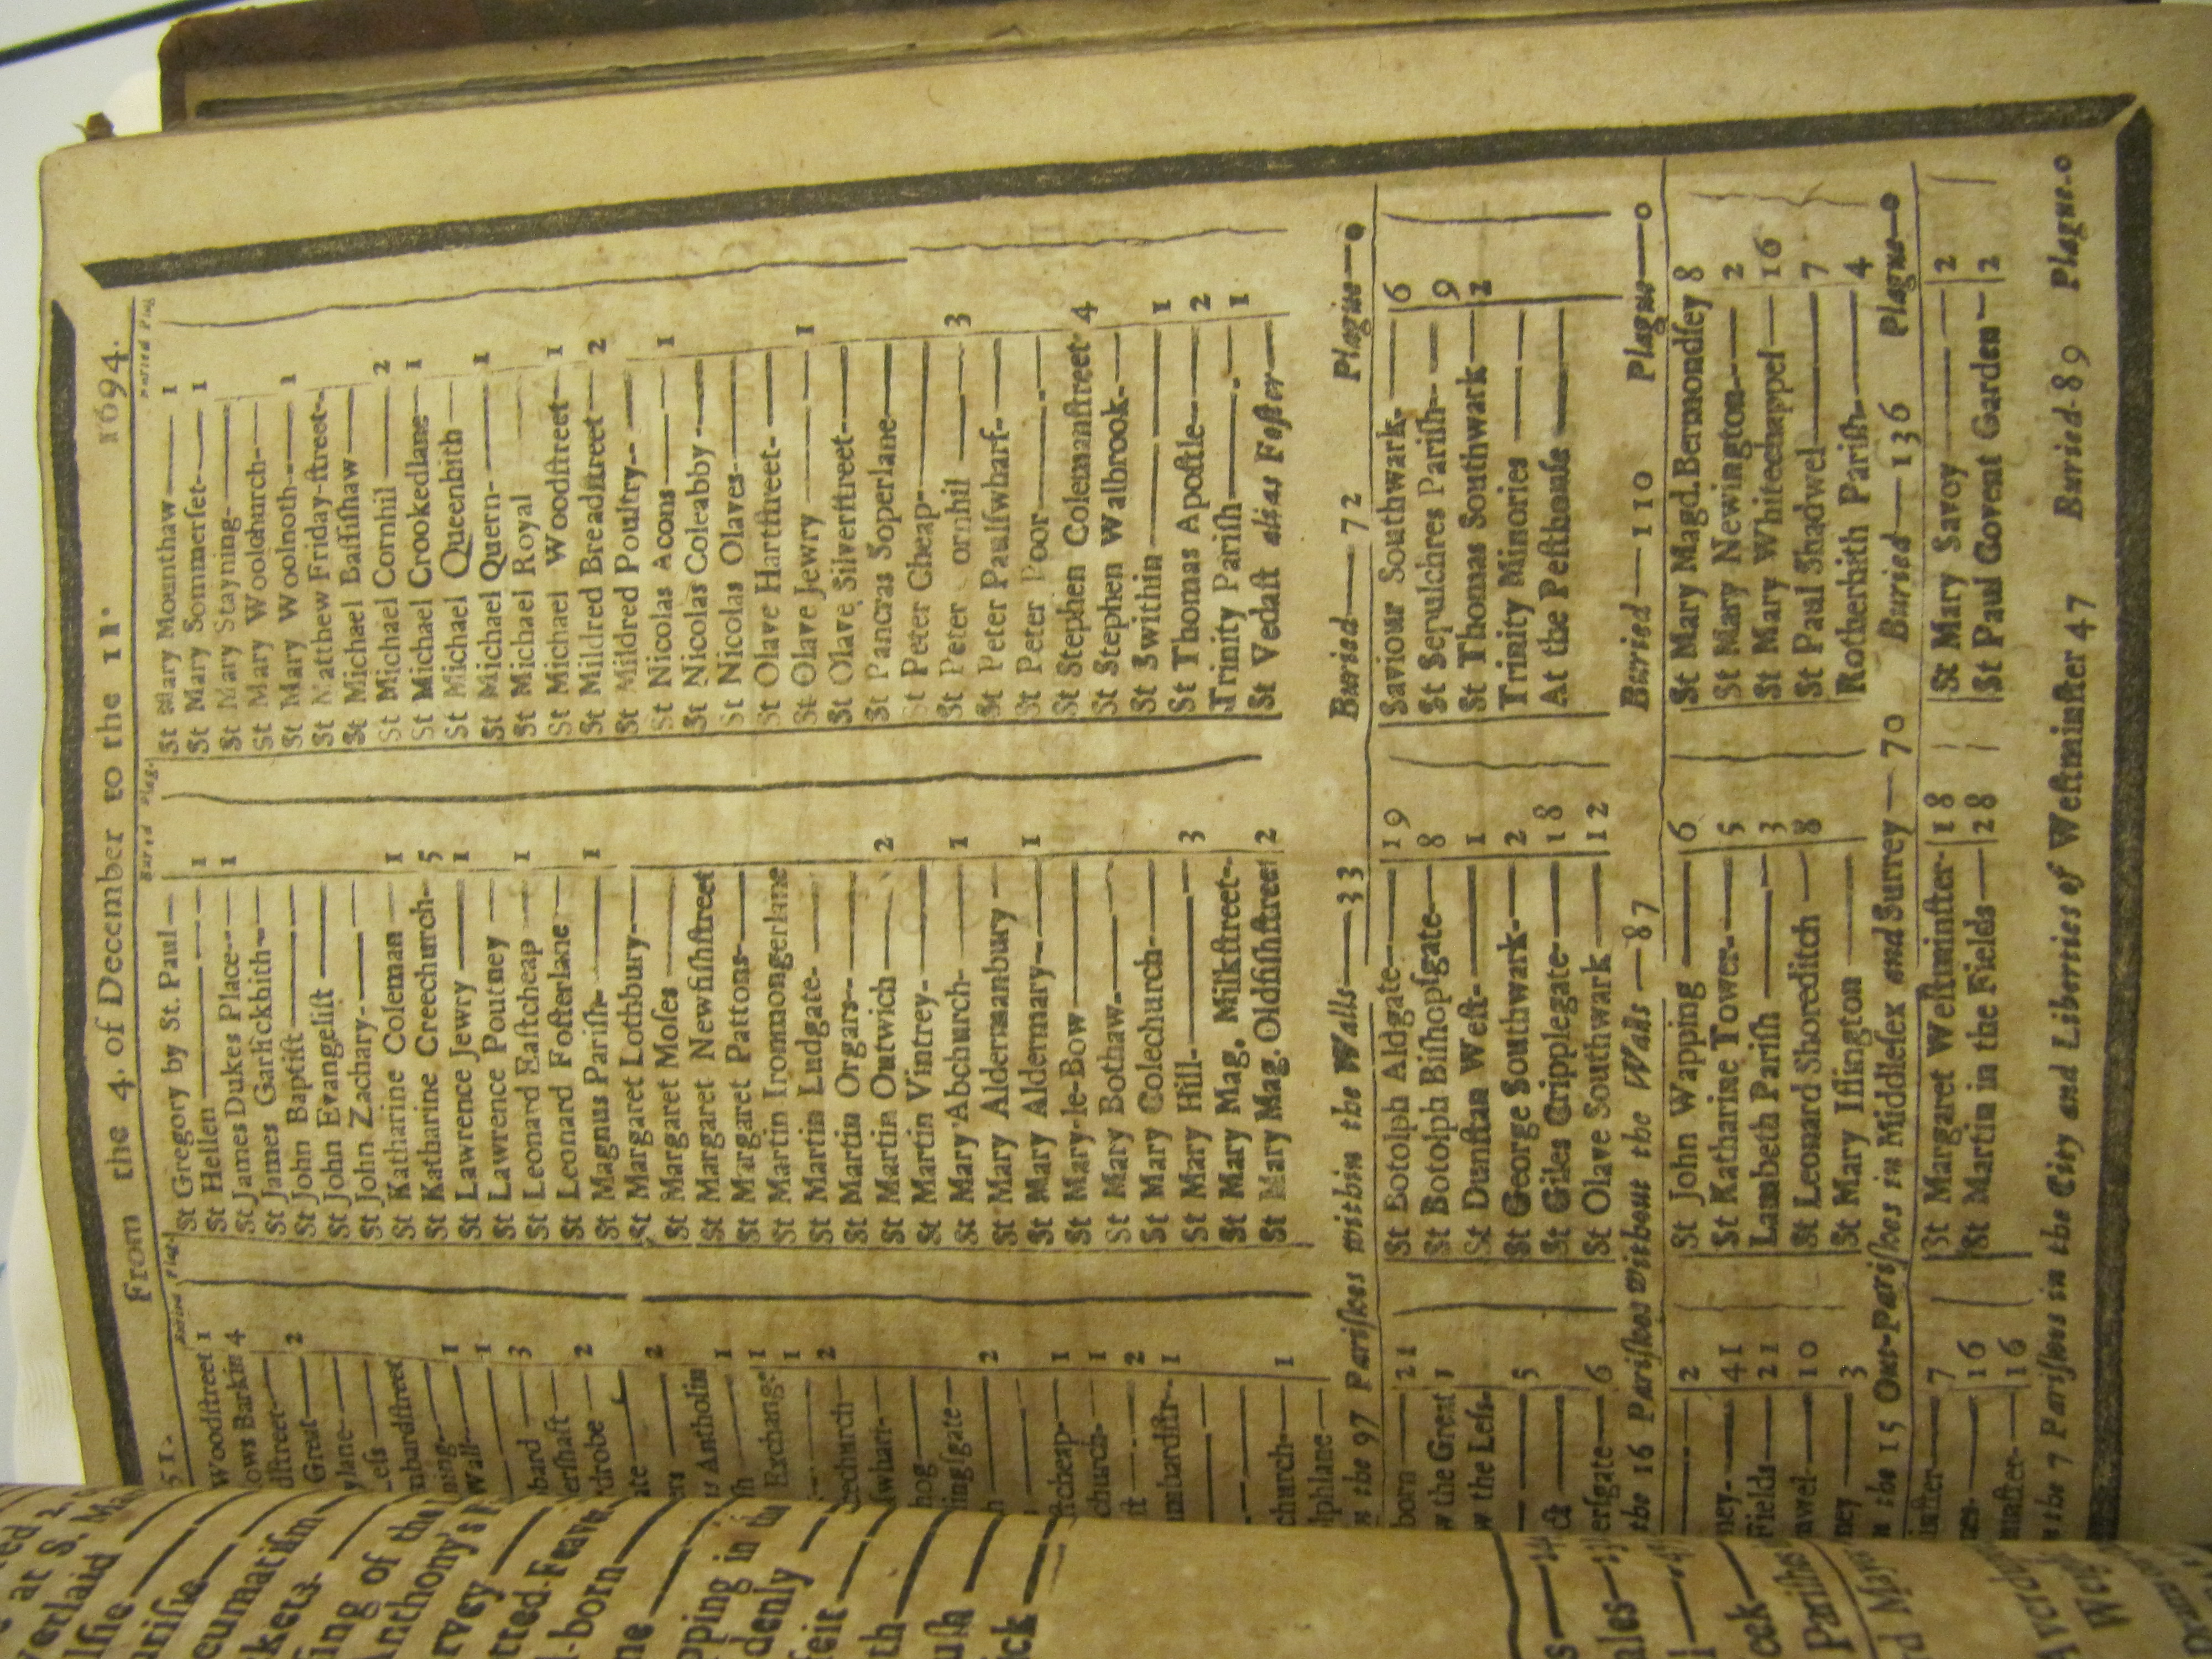 From the 4. of December to the 11. 1694.
51.
Buried Plag.
Woodſtreet 1
ows Barkin 4
dſtreet—
Great— 2
ylane—
Leſs
mbardſtreet
ning— 1
Wall— 1
— 3
bard —
erſhaft— 2
drobe —
ate — 2
ers
s Antholin 1
ſh
Exchange 1
— 1
cechurch— 2
ſwharf—
hog
lingſgate—
h — 2
ſtcheap— 1
church— 1
ſt — 2
mbardſtr. 1
church— 1
iphlane—
Buried Plag.
St Gregory by St. Paul—
St Hellen — 1
St James Dukes Place— 1
St James Garlickhith—
St John Baptiſt —
St John Evangeliſt —
St John Zachary—
St Katharine Coleman — 1
St Katharine Creechurch— 5
St Lawrence Jewry — 1
St Lawrence Poutney —
St Leonard Eaſtcheap — 1
St Leonard Foſterlane —
St Magnus Pariſh— 1
St Margaret Lothbury—
St Margaret Moſes —
St Margaret Newfiſhſtreet
St Margaret Pattons—
St Martin Ironmongerlane
St Martin Ludgate—
St Martin Orgars—
St Martin Outwich — 2
St Martin Vintrey—
St Mary Abchurch— 1
St Mary Aldermanbury —
St Mary Aldermary— 1
St Mary-le-Bow—
St Mary Bothaw—
St Mary Colechurch—
St Mary Hill— 3
St Mary Mag. Milkſtreet—
St Mary Mag. Oldfiſhſtreet 2
Buried Plag
St Mary Mounthaw— 1
St Mary Sommerſet— 1
St Mary Stayning—
St Mary Woolchurch—
St Mary Woolnoth— 1
St Matthew Friday-ſtreet-
St Michael Baſſiſhaw—
St Michael Cornhil — 2
St Michael Crookedlane— 1
St Michael Queenhith —
St Michael Quern— 1
St Michael Royal
St Michael Woodſtreet— 1
St Mildred Breadſtreet— 2
St Mildred Poultry—
St Nicolas Acons— 1
St Nicolas Coleabby —
St Nicolas Olaves—
St Olave Hartſtreet—
St Olave Jewry — 1
St Olave Silverſtreet—
St Pancras Soperlane—
St Peter Cheap—
St Peter ornhil — 3
St Peter Paulſwharf—
St Peter Poor—
St Stephen Colemanſtreet 4
St Stephen Walbrook—
St Swithin — 1
St Thomas Apoſtle— 2
Trinity Pariſh— 1
St Vedaſt alias Foſter—
n the 97 Pariſhes within the Walls—33 Buried—72 Plague—0
born — 21
w the Great 1
w the Leſs—
— 5
ct —
erſgate— 6
St Botolph Aldgate— 19
St Botolph Biſhopſgate— 8
St Dunſtan Weſt— 1
St George Southwark— 2
St Giles Cripplegate— 18
St Olave Southwark — 12
Saviour Southwark— 6
St Sepulchres Pariſh— 9
St Thomas Southwark— 2
Trinity Minories —
At the Peſthouſe —
the 16 Pariſhes without the Walls —87 Buried—110 Plague—0
— 2
ney— 41
Fields— 21
nwel— 10
ney — 3
St John Wapping — 6
St Katharine Tower— 5
Lambeth Pariſh — 3
St Leonard Shoreditch — 8
St Mary Iſlington —
St Mary Magd. Bermondſey 8
St Mary Newington— 2
St Mary Whitechappel— 16
St Paul Shadwel— 7
Rotherhith Pariſh— 4
n the 15 Out-Pariſhes in Middleſex and Surrey—70 Buried—136 Plague—0
inſter— 7
nes— 16
minſter— 16
St Margaret Weſtminſter— 18
St Martin in the Fields— 28
St Mary Savoy — 2
St Paul Covent Garden— 2
n the 7 Pariſhes in the City and Liberties of Weſtminſter 47 Buried-89 Plague-0
at S.
verlaid
lſie—
uriſie
cumatiſm—
kets
ing of the
Anthony's
rvey
tted-Feaver
l-born
ne
pping in the
denly
feit
th
uſh
ick
ales
cek
Pariſhes
rd May
Averdu